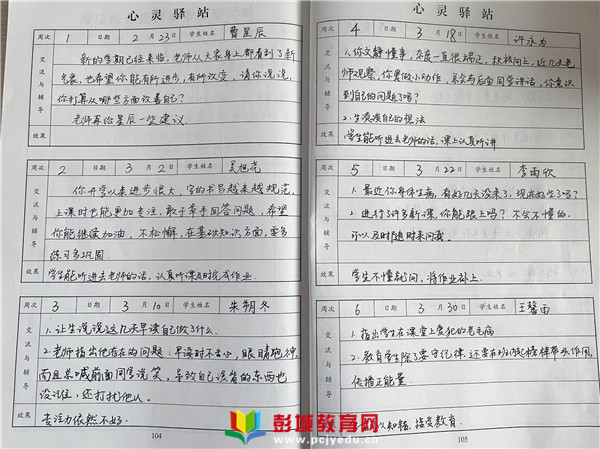 心灵驿站
周次 1 日期 2月23日 学生姓名 曹星辰
交流与辅导
新的学期已经来临，老师从大家身上都看到了新
气象，也希望你能有所进步，有所改变，请你说说，
你打算从哪些方面改善自己？
老师再给星辰一些建议．
效果
周次 2 日期 3月2日 学生姓名 吴旭尧
交流与辅导
你开学以来进步很大，字的书写越来越规范，
上课时也能更加专注，敢于举手回答问题，希望
你能继续加油，不松懈，在基础知识方面，要多
练习多巩固．
效果 学生能听进去老师的话，认真听课及时完成作业．
周次 3 日期 3月10日 学生姓名 朱朔冬
交流与辅导
1．让生说说这几天早读自己做了什么．
2．老师指出他存在的问题，早读时不专心，眼睛跑神，
而且总喊前面同学说笑，导致自己该背的东西也
没记住，还打扰他人．
效果 专注力依然不好．
104
心灵驿站
周次 4 日期 3月18日 学生姓名 许永为
交流与辅导
1．你文静懂事，态度一直很端正，积极向上，近几天老
师观察，你爱做小动作，总会与后面同学讲话，你意识
到自己的问题了吗？
2．生谈谈自己的想法
效果 学生能听进去老师的话，课上认真听讲
周次 5 日期 3月22日 学生姓名 李雨欣
交流与辅导
1．最近你身体生病，有好几天没来了，现在好些了吗？
2．进行了许多新课，你能跟上吗？不会不懂的，
可以及时随时来问我．
效果 学生不懂就问，将作业补上．
周次 6 日期 3月30日 学生姓名 王馨雨
交流与辅导
1．指出学生在课堂上爱犯的老毛病
2．教育学生除了要守纪律，还要在班内起榜样带头作用，
传播正能量．
效果 以知错，接受教育．
105
彭城教育网
www.pcjyedu.cn